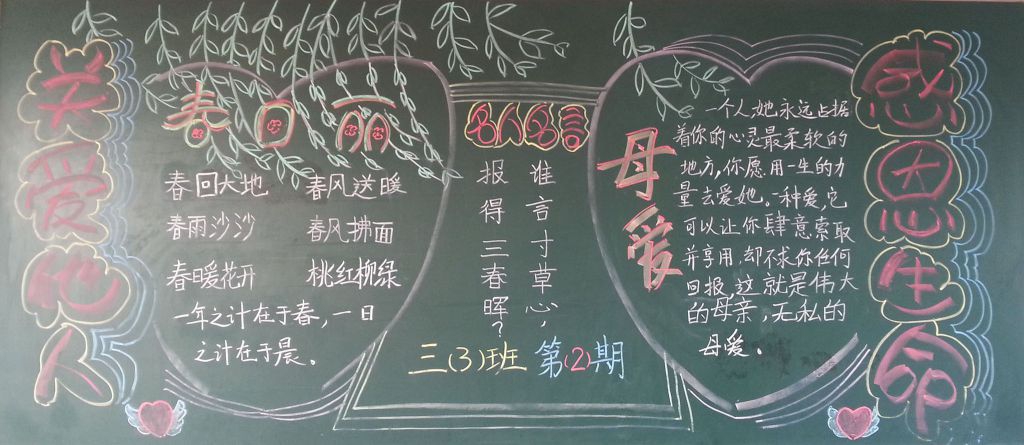 关爱他人
春
春回大地 春风送暖
春雨沙沙 春风拂面
春暖花开 桃红柳绿
一年之计在于春，一日
之计在于晨。
名人名言
谁言寸草心，
报得三春晖？
三(3)班 第(2)期
母爱
一个人，她永远占据
着你的心灵最柔软的
地方，你愿用一生的力
量去爱她。一种爱，它
可以让你肆意索取
并享用，却不求你任何
回报，这就是伟大
的母亲，无私的
母爱。
感恩生命